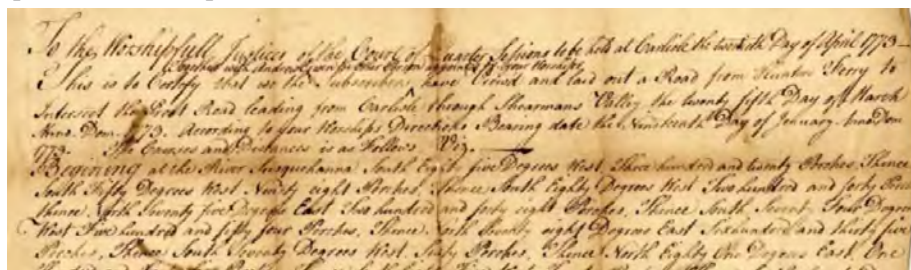 To the Worshipfull Justices of the Court of Quarter Sessions to be held at Carlisle the twentieth Day of April 1773 —
Together with
This is to Certify that we the Subscribers have Viewed and laid out a Road from Hunters Ferry to
Intersect the Great Road leading from Carlisle through Shearmans Valley the twenty fifth Day of March
Anno Dom. 1773. According to your Worships Directions Bearing date the Nineteenth Day of January Anno Dom
1773. The Courses and Distances is as Follows Viz.
Begining at the River Susquehanna South Eighty five Degrees West, Three hundred and twenty Perches, Thence
South Fifty Degrees West Ninety eight Perches, Thence South Eighty Degrees West Two hundred and forty
Thence North Seventy five Degrees East Two hundred and forty eight Perches, Thence South Seventy Degrees
West Five hundred and fifty four Perches, Thence North Seventy eight Degrees East Six hundred and thirty five
Perches, Thence South Seventy Degrees West, Sixty Perches, Thence North Eighty One Degrees East, One